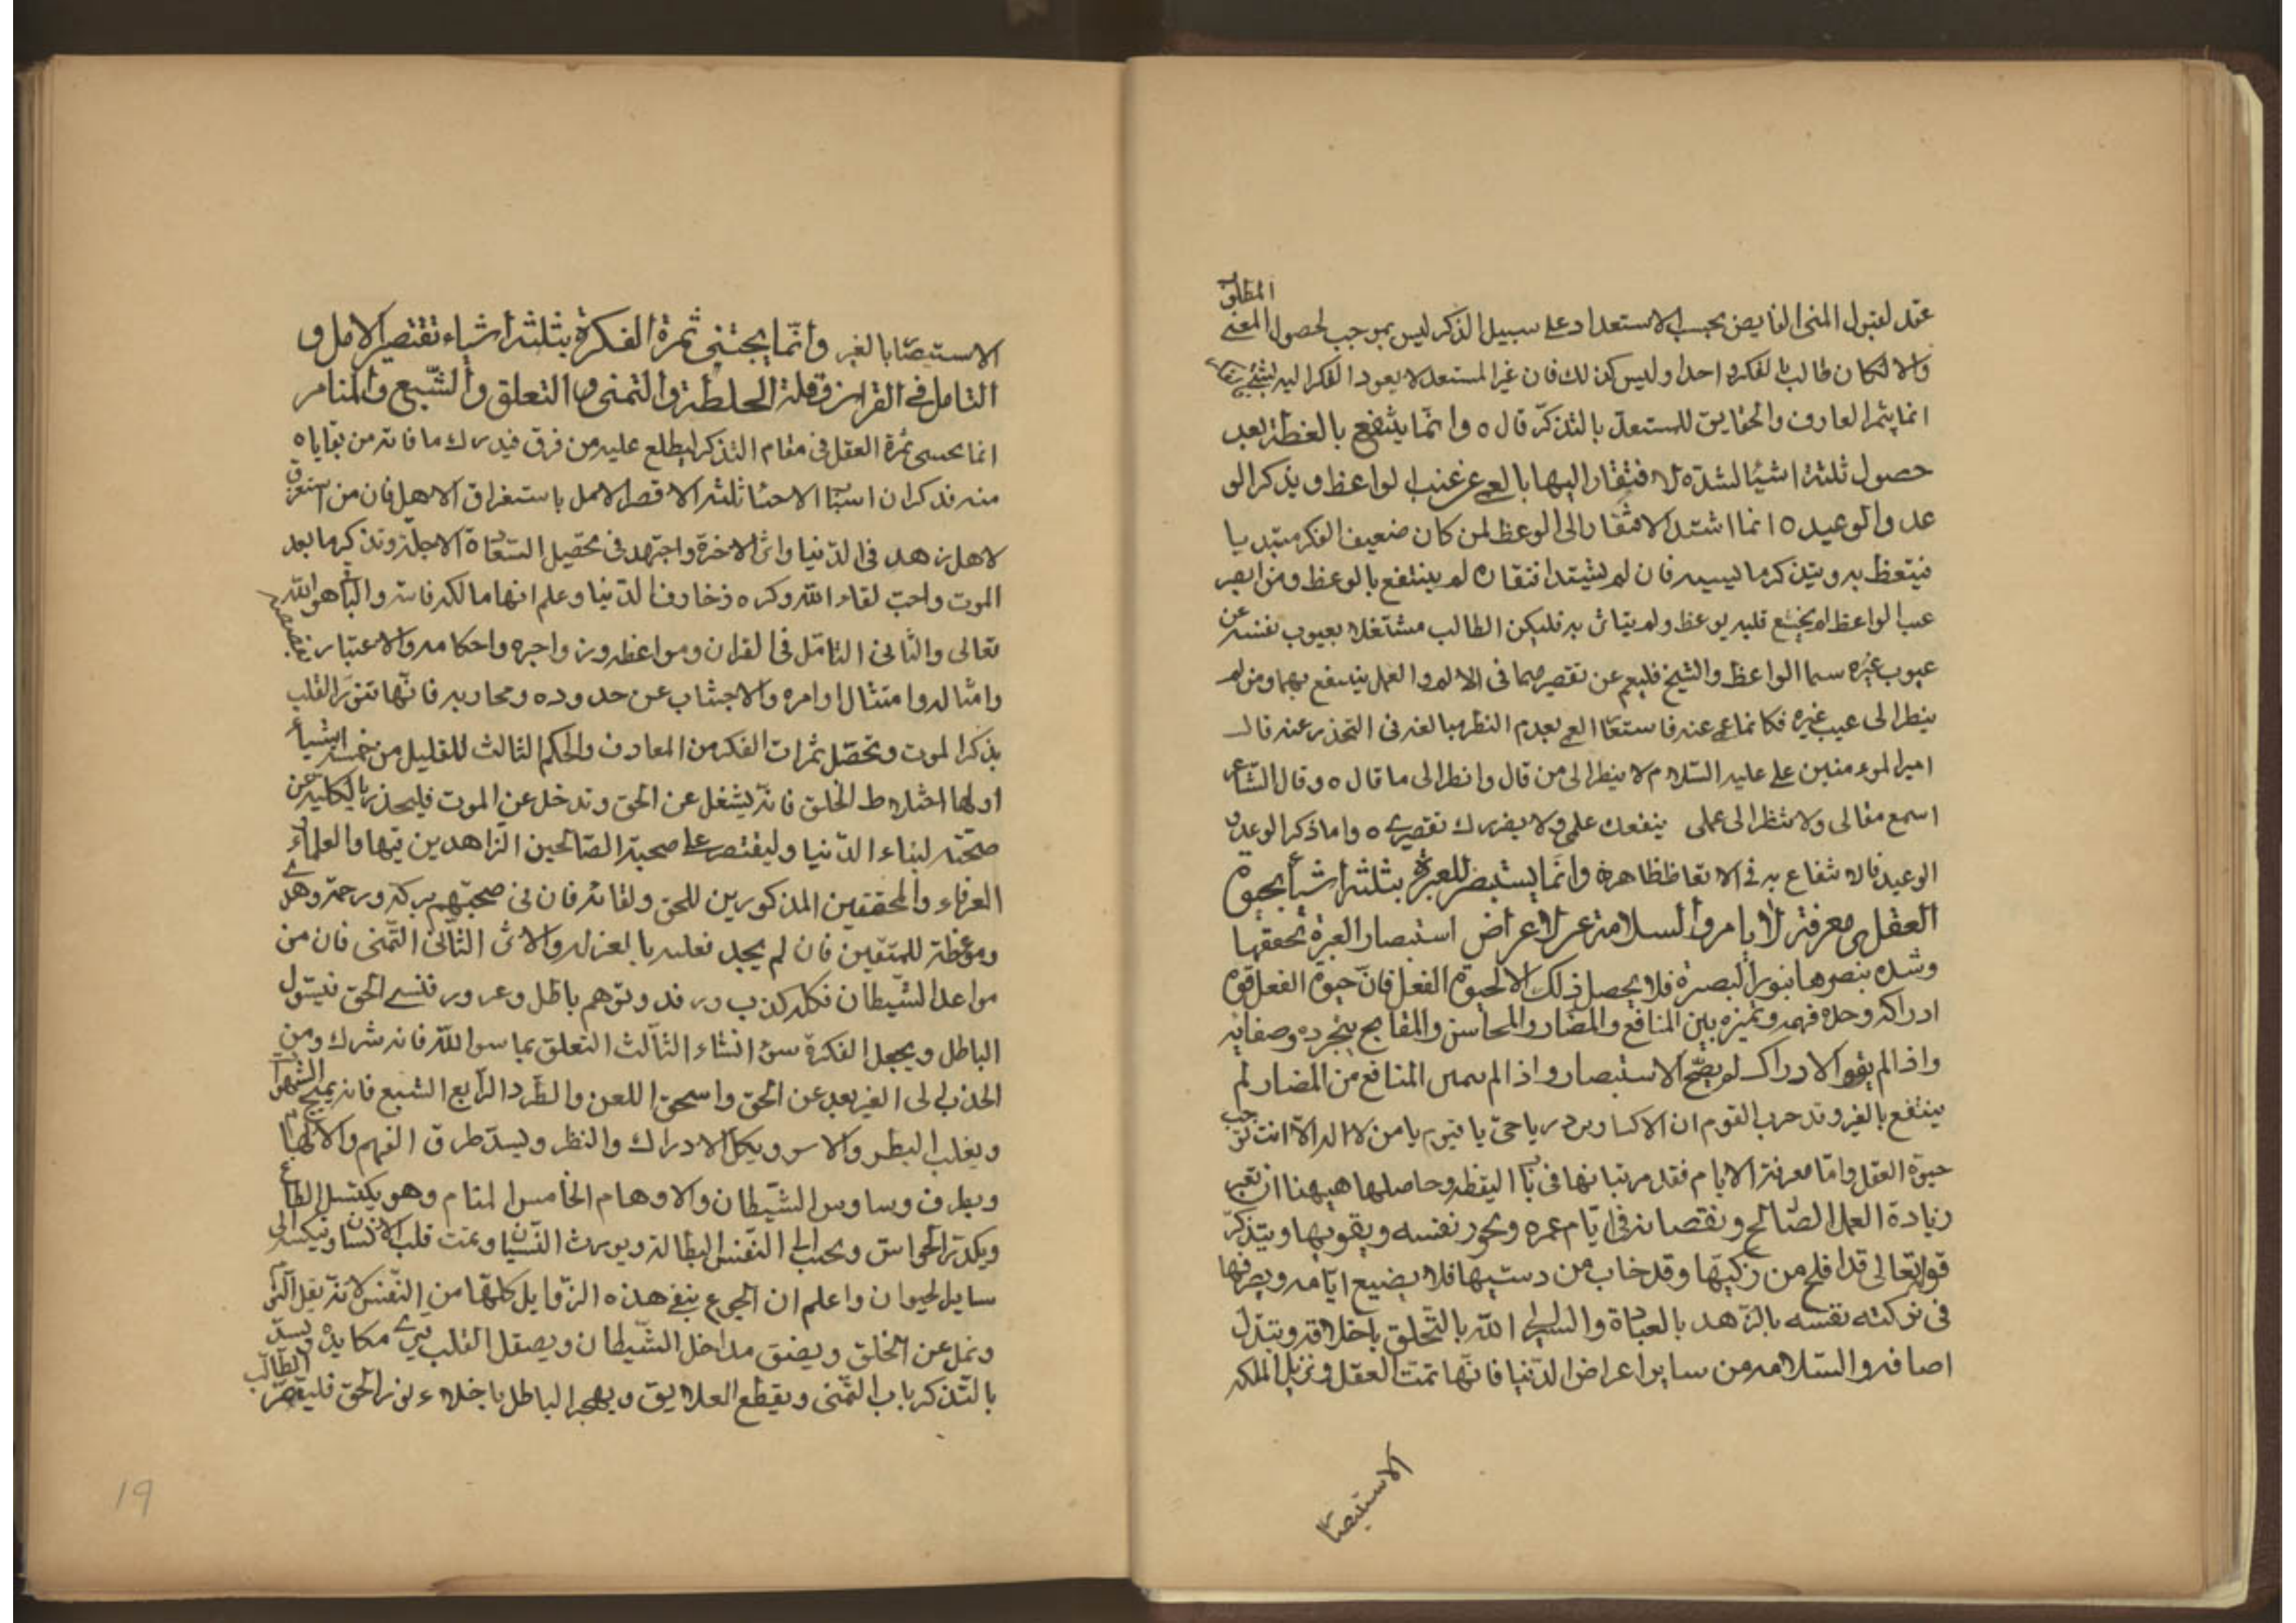 المطلق
عقد لقبول المنى الفايض بحسب الاستعداد على سبيل الذكر ليس بموجب لحصول المعنى
والا لكان طالب بالفكر واحدا وليس كذلك فان غير المستعد لا يعود الفكر اليه بشئ
انما يثمر العارف والحقايق للمستعد بالتذكر قال ٥ وانما ينتفع بالعظة بعد
حصول ثلثة اشيا لشدة الافتقار اليها بالعمى عن عيب الواعظ ويذكر الو
عد والوعيد ٥ انما اشتد الافتقار الى الوعظ لمن كان ضعيف الفكر مبتديا
فيتعظ به ويتذكر ما ليسه فان لم يشتد افتقاره لم ينتفع بالوعظ ومن ابصر
عيب الواعظ لم يخشع قلبه بوعظ ولم يتاثر به فليكن الطالب مشتغلا بعيوب نفسه عن
عيوب غيره سيما الواعظ والشيخ فليعم عن تقصيرهما في الا لم والعمل ينتفع بهما ومن لم
ينظر الى عيب غيره فكانما عمى عنه فاستعا العمى بعدم النظر مبالغه فى التحذر عنه قال
امير الموء منين على عليه السلام لا ينظر الى من قال وانظر الى ما قال ٥ وقال الشاعر
اسمع مقالى ولا تنظر الى عملى ينفعك علمى ولا يضررك تقصيرى ٥ واما ذكر الوعد و
الوعيد فالانتفاع به فى الاتعاظ ظاهرة وانما يستبصر للعبرة بثلثة اشيأ بحيوة
العقل ومعرفة الايام والسلامة عن الاعراض استبصار العبرة تحققها
وشده بنصرها بنور البصرة فلا يحصل ذلك الا لحيوة الفعل فان حيوة الفعل قوة
ادراكه وحده فهمه وتميزه بين المنافع والمضار والمحاسن والمقابح بتجرده وصفايه
واذا لم يقو الادراك لم يصح الاستبصار واذا لم يميز المنافع من المضار لم
ينتفع بالغير وقد جرب القوم ان الاكثار ورد يا حى يا قيوم يا من لا اله الا انت توجب
حيوة العقل واما معرفة الايام فقد مر تبيانها فى باب اليقظه وحاصلها هيهنا ان تعبر
زيادة العمل الصالح ونقصانه فى ايام عمره ونحو ر نفسه ويقويها ويتذكر
قوله تعالى قد افلح من زكيها وقد خاب من دسيها فلا يضيع ايامه ويصرفها
فى تزكيته نفسه بالزهد بالعبادة والسلى الى الله بالتخلق باخلاقه ويتبدل
اصافه والسلامه من ساير اعراض الدنيا فانها تمت العقل وتزيل الملكه
الاستبصا
الاستبصا بالغير وانما يجتنى ثمرة الفكرة بثلثة اشياء تقتصير الامل و
التامل فى القران وقلة الخلطة والتمنى والتعلق والشبع والمنام
انما يحسى ثمرة العقل فى مقام التذكر ليطلع عليه من فرق فيدرك ما فاته من بقاياه
منه فذكر ان اسبا الاجتنا ثلثه الا قصر الامل باستغراق الاهل فان من استغرق
لاهل زهد فى الدنيا واثر الاخرة واجتهد فى تحصيل السعادة الاجلة وتذكر ما بعد
الموت واحب لقاء الله وكره زخارف الدنيا وعلم انها مالكه فاسد والباقى هو الله
تعالى والثانى التامل فى القران ومواعظه وزواجره واحكامه والاعتبار بقصصه
وامثاله وامتثال اوامره والاجتناب عن حدوده ومحاربه فانها تنور القلب
بذكر الموت وتحصل ثمرات الفكر من المعارف والحكم الثالث للتقليل من خمسة اشيأ
اولها اختلاط الخلق فانه يشغل عن الحق وتدخل عن الموت فليحذر بالكليه عن
صحبته لبناء الدنيا وليقتصر على صحبة الصالحين الزاهدين فيها والعلماء
العرفاء والمحققين المذكورين للحق ولقائه فان فى صحبتهم بركة ورحمة وهدى
وموعظة للمتقين فان لم يجد فعليه بالعزله والاثر الثانى التمنى فان من
مواعد الشيطان فكله كذب ورفد وتوهم باطل وعرور فنسى الحق فيستول
الباطل ويجعل الفكرة سوء انشاء الثالث التعلق بما سوا الله فانه شرك ومن
الجذب الى الغير بعد عن الحق واسحق اللعن والطرد الرابع الشبع فانه يميج الشهوات
ويغلب البطر والاسر ويكل الادراك والنظر ويسد طرق الفهم والالهام
ويطرف وساوس الشيطان والاوهام الخامس المنام وهو يكتسل الطباع
ويكدر الحواس ويحبب الى النفس البطالة ويورث النسيان ويمت قلب الانسان وينكسه الى
سايل لحيوان واعلم ان الجوع ينفى هذه الرذايل كلها من النفس لانه يقل التى
وتمل عن الخلق ويضيق مداخل الشيطان ويصقل القلب فيرى مكايده ويسد
بالتذكر باب التمنى ويقطع العلايق ويهجر الباطل باجلاء نور الحق فليقتصر الطالب
19